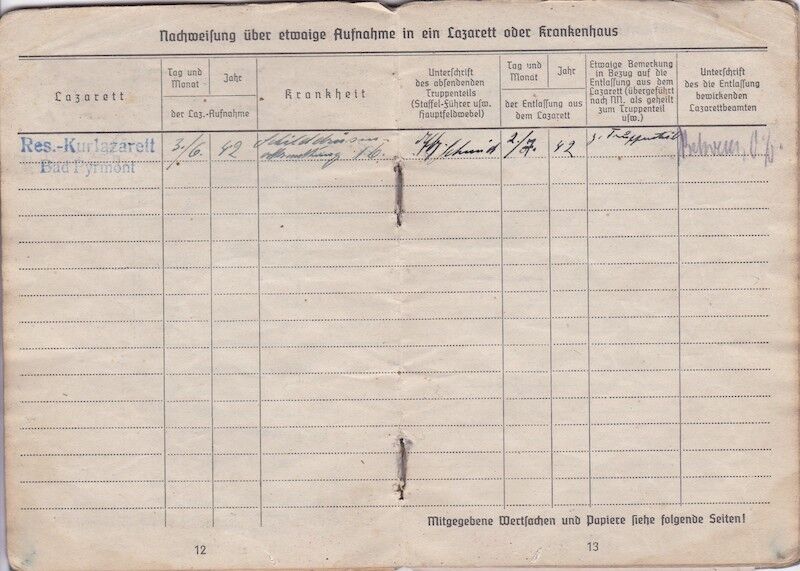 Nachweisung über etwaige Aufnahme in ein Lazarett oder Krankenhaus
Lazarett
Tag und
Monat
Jahr
der Laz.-Aufnahme
Krankheit
Unterschrift
des absendenden
Truppenteils
(Staffel-Führer usw.
Hauptfeldwebel)
Tag und
Monat
Jahr
der Entlassung aus
dem Lazarett
Etwaige Bemerkung
in Bezug auf die
Entlassung aus dem
Lazarett (übergeführt
nach NN. als geheilt
zum Truppenteil
usw.)
Unterschrift
des die Entlassung
bewirkenden
Lazarettbeamten
Res.-Kurlazarett
Bad Pyrmont
3./6.
42
2/7.
42
z. Truppenteil
Mitgegebene Wertsachen und Papiere siehe folgende Seiten!
12
13